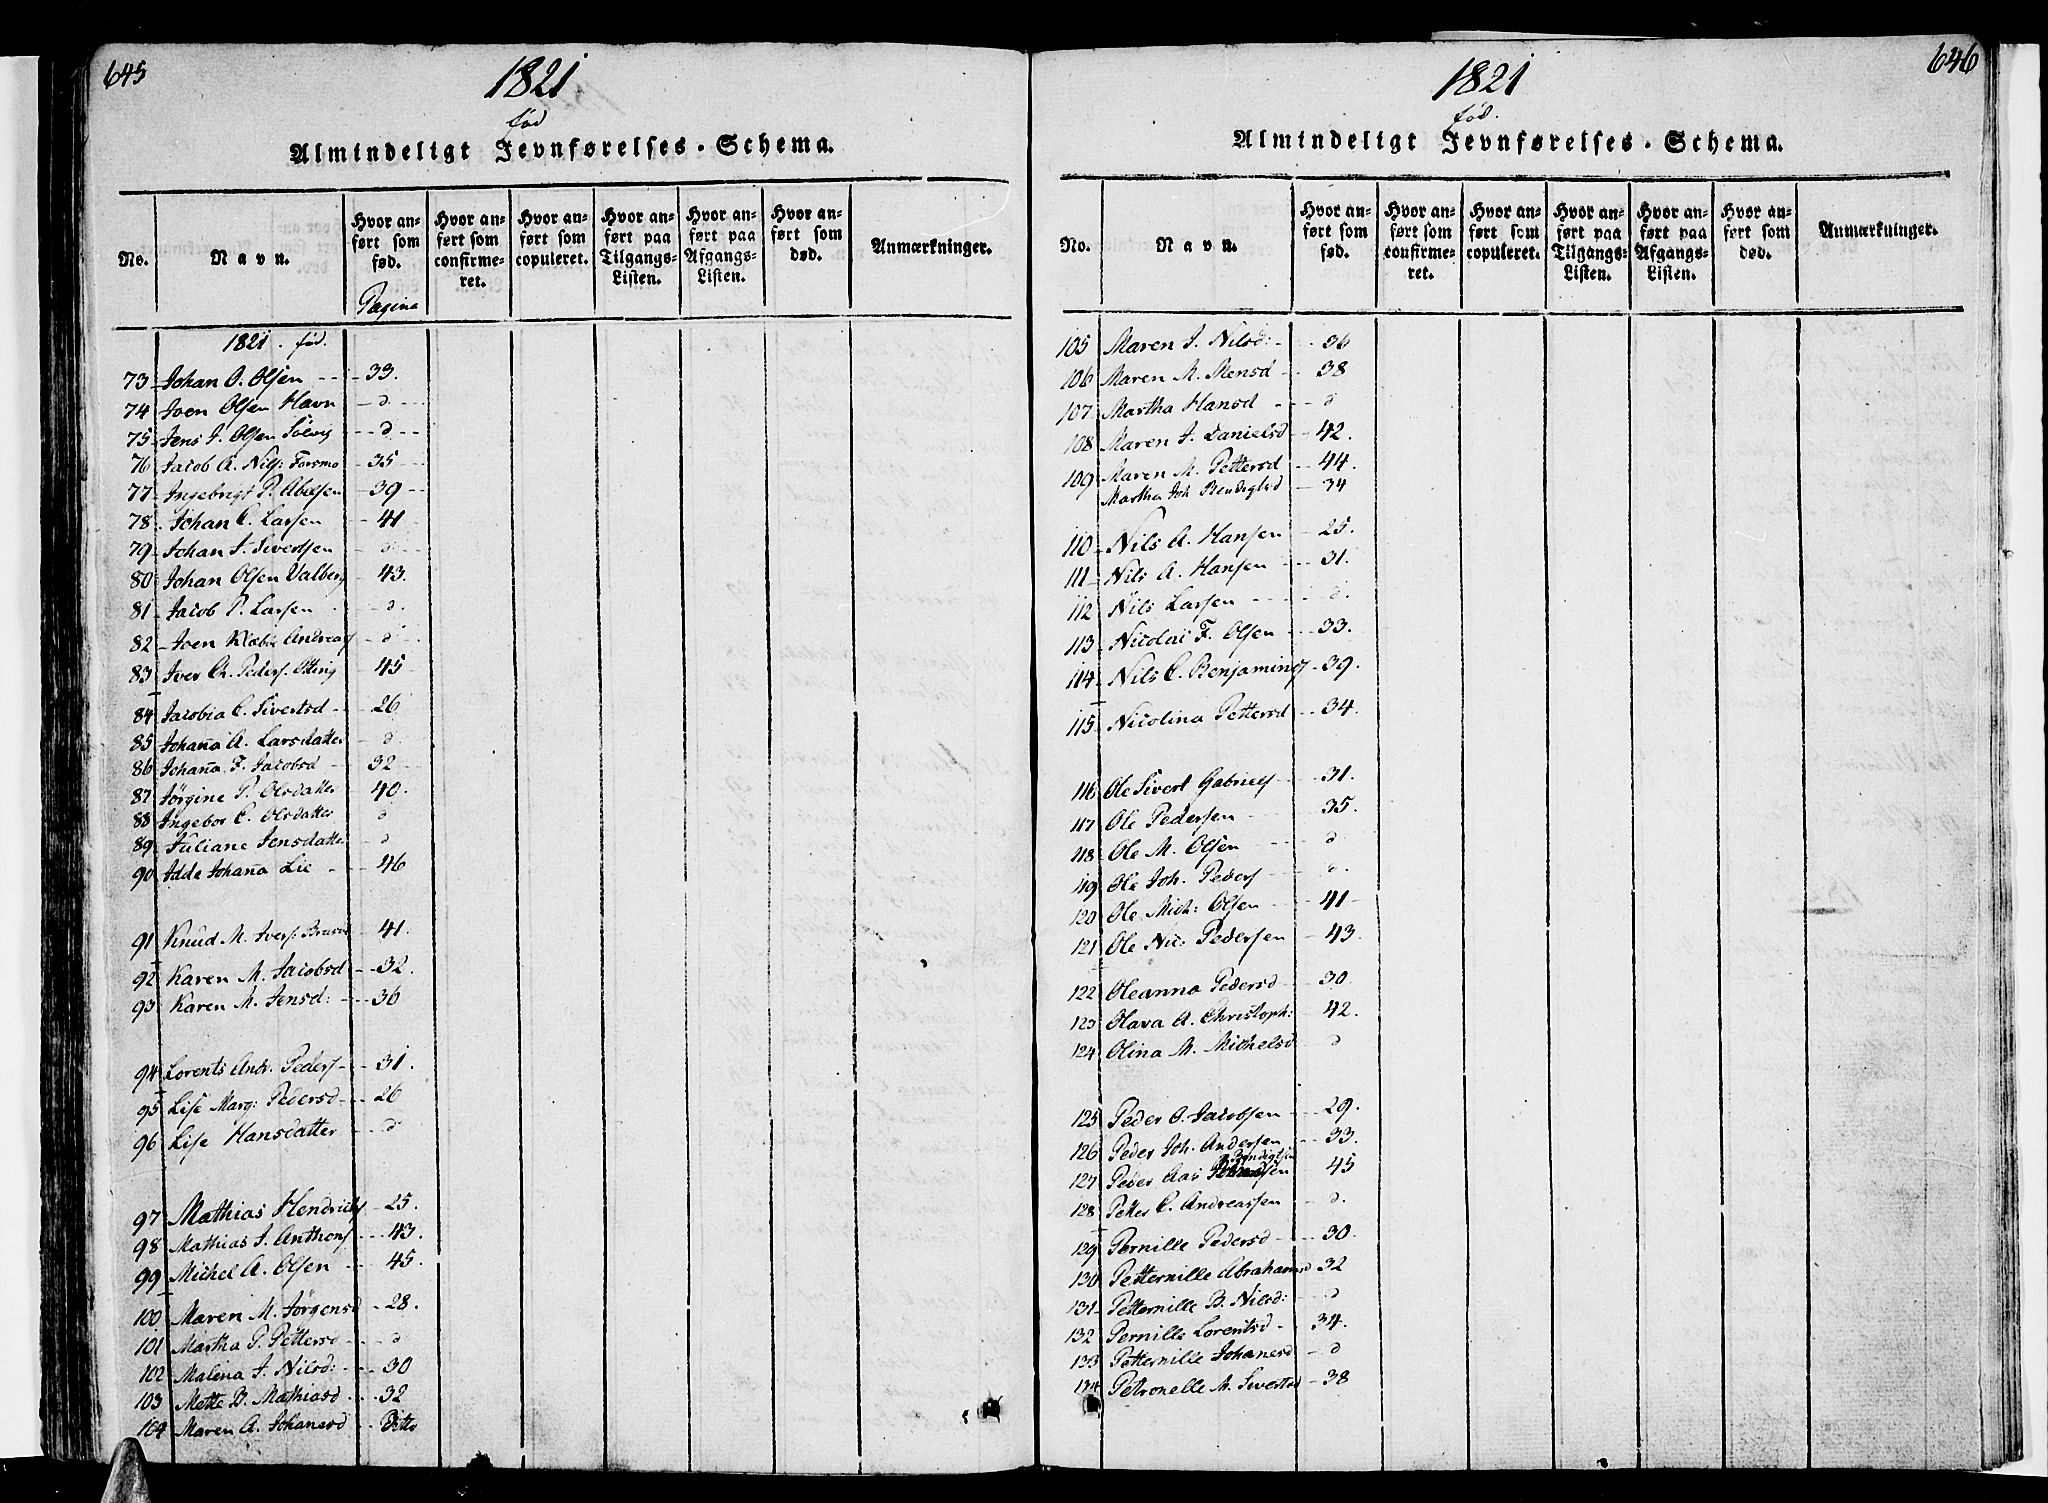 645
1821
fød
Almindeligt Jevnførelses-Schema.
No. Navn. Hvor anført som fød. Hvor anført som confirmeret. Hvor anført som copuleret. Hvor anført paa Tilgangs-Listen. Hvor anført paa Afgangs-Listen. Hvor anført som død. Anmærkninger.
Pagina
1821. fød.
73 Johan O. Olsen - - 33.
74 Joen Olsen Havn - d. -
75 Jens J. Olsen - d -
76 Jacob A. Nils: Forsmo - 35
77 Ingebrigt P. Abelsen - 39 -
78 Johan C. Larsen - 41
79 Johan J. Sivertsen - d -
80 Johan Olsen Valberg - 43.
81 Jacob P. Larsen - d.
82 Joen Klæboe Andreas - d
83 Iver Ch. Peders. - 45
84 Jacobia C. Sivertsd - 26
85 Johaña A. Larsdatter - d.
86 Johaña F. Jacobsd - 32
87 Jørgine P. Olsdatter - 40.
88 Ingebor C. Olsdatter d
89 Juliane Jensdatter - d
90 Idde Johaña Lie - - 46
91 Knud M. Ivers: - 41.
92 Karen M. Jacobsd - 32.
93 Karen M. Jensd: - - 36
94 Lorents Andr. Peders - - 31.
95 Lise Marg: Pedersd - - 26
96 Lise Hansdatter - - d
97 Mathias Hendriks - 25.
98 Mathias J. Anthons - - 43.
99 Michel A. Olsen - - 45.
100 Maren M. Jørgensd - 28.
101 Martha P. Pettersd - - d
102 Malena J. Nilsd: - - 30
103 Mette B. Mathiasd - - 32
104 Maren A. Johanesd - - Ditto
646
1821
fød.
Almindeligt Jevnførelses-Schema.
No. Navn. Hvor anført som fød. Hvor anført som confirmeret. Hvor anført som copuleret. Hvor anført paa Tilgangs-Listen. Hvor anført paa Afgangs-Listen. Hvor anført som død. Anmærkninger.
105 Maren J. Nilsd: - - 36
106 Maren M. Mensd - 38
107 Martha Hansd - - d
108 Maren J. Danielsd - 42.
109 Maren M. Pettersd - - 44.
Martha Joh - 34
110 Nils A. Hansen - 25.
111 Nils A. Hansen - - 31.
112 Nils Larsen - - - d.
113 Nicolai F. Olsen - - 33.
114 Nils C. Benjamins - 39.
115 Nicolina Pettersd - - 34.
116 Ole Sivert Gabriels - 31.
117 Ole Pedersen - - 35.
118 Ole M. Olsen - - d
119 Ole Joh. Peders - - d.
120 Ole Mich: Olsen - - 41 -
121 Ole Nic: Pedersen - 43.
122 Oleanna Pedersd - 30.
123 Olava A. Christoph: - 42.
124 Olina M. Michelsd d
125 Peder O. Jacobsen - - 29.
126 Peder Joh. Andersen - - 33.
Bendigtsen
127 Peder Aas 45
128 Petter C. Andreassen - d.
129 Pernille Pedersd - - 30.
130 Petternille Abrahamsd 32
131 Petternille B. Nilsd: - d
132 Pernille Lorentsd - 34.
133 Petternille Johanesd - d
134 Petronelle M. Sivertsd - 38